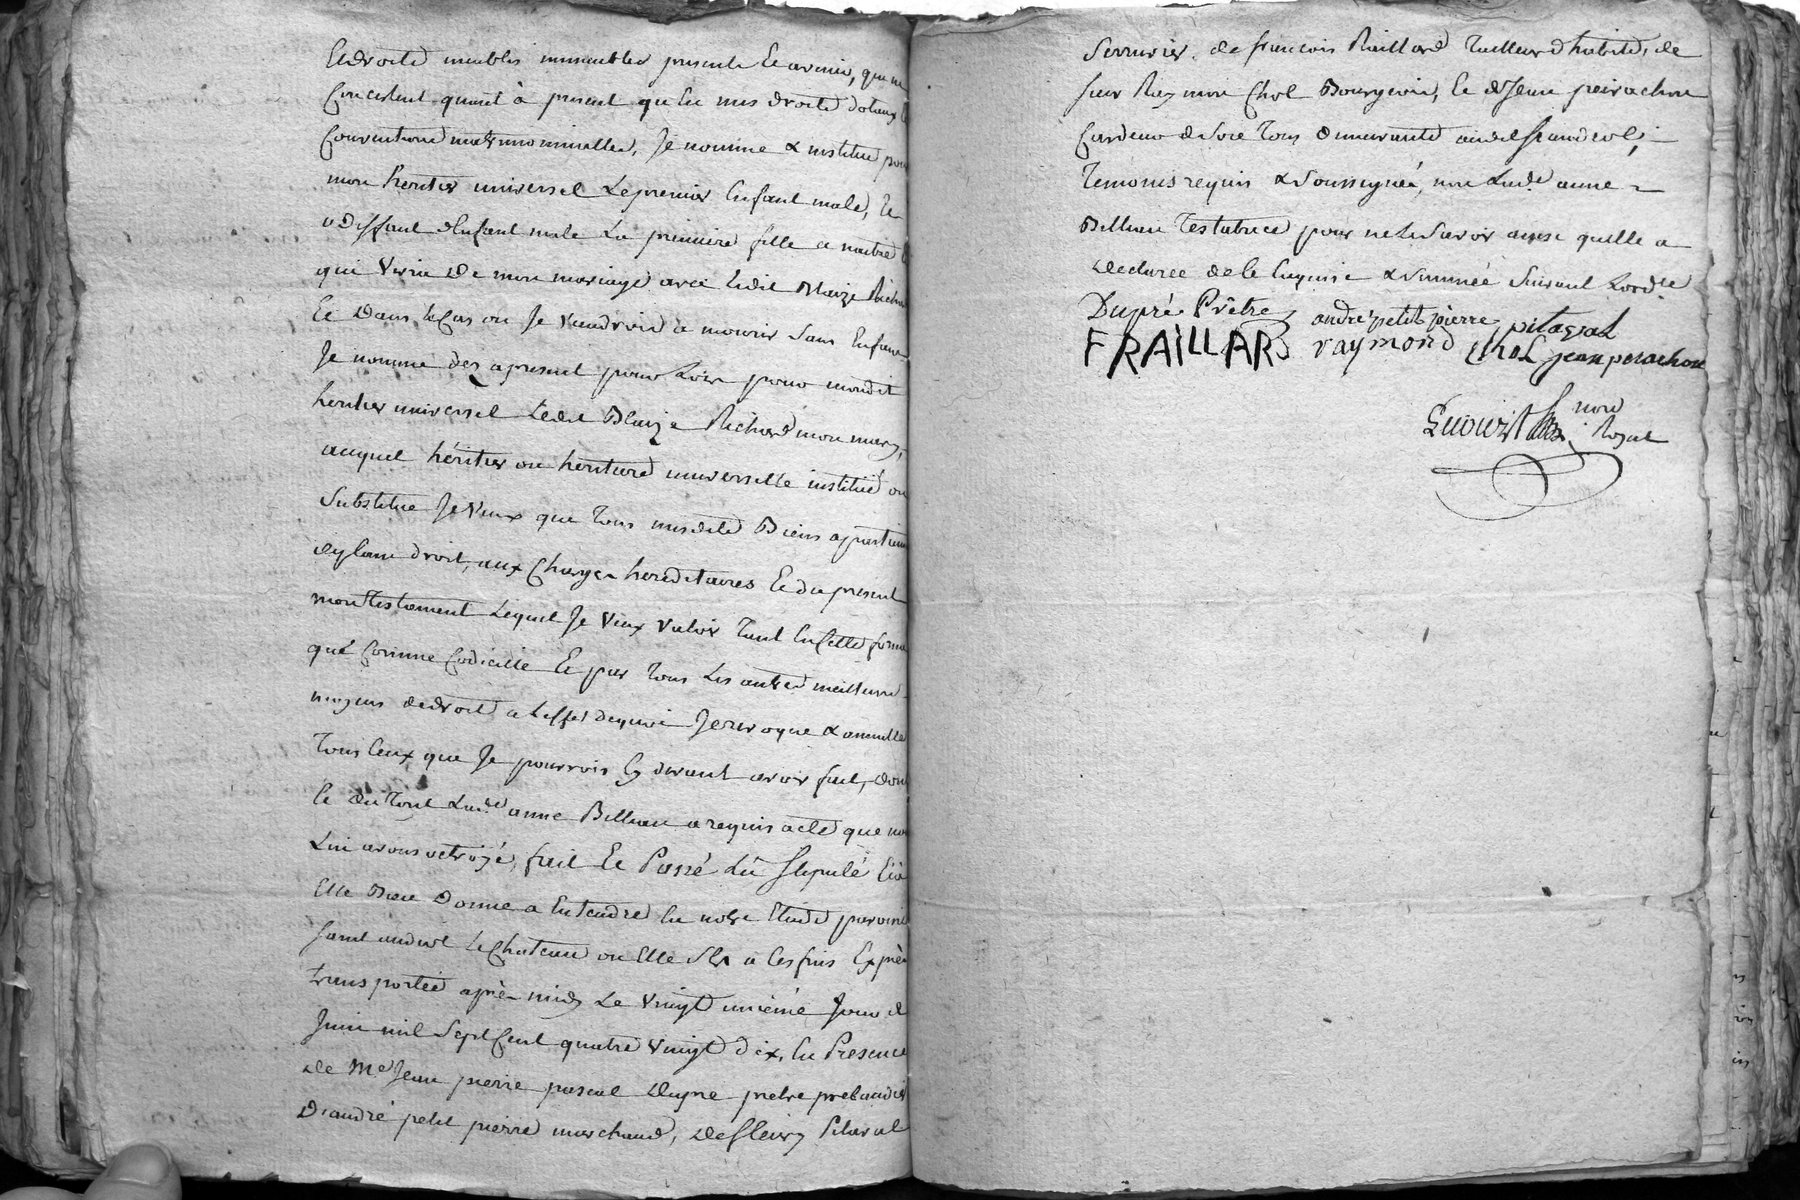 Et droits meubles immeubles presents Et avenir, que ne
Consistent quant à present qu'En mes droits dotaux &
Conventions matrimonialles, Je nomme & institue pour
mon heritier universel Le premier Enfant male, Et
a deffaut d'Enfant male La premiere fille a naitre
qui Vivra de mon mariage avec Ledit Blaize Richard
Et Dans le Cas ou Je Viendrois a mourir Sans Enfans
Je nomme dez apresent pour Lors pour mondit
heritier universel Ledit Blaize Richard mon mary,
auquel héritier ou heritiere universelle institué ou
Substitue Je Veux que Tous mesdits Biens apartienne
de plain droit, aux Charges hereditaires Et du present
mon Testament Lequel Je Veux Valoir Tant En Cette forme
que Comme Codicille Et par Tous Les autres meilleurs
moyens de droit a L'effet dequoi Je revoque & annulle
Tous Ceux que Je pourrois Cy devant avoir fait, dont
Et du Tout Lad.te anne Billiau a requis acte que nous
Lui avons octroyé, fait Et Passé Lû Stipulé
Elle Bien Donné a Entendre En notre Etude paroisse
Saint andeol Le Chateau ou Elle S'Est a Ces fins Exprès
transportée après midy Le Vingt unième Jour de
Juin mil Sept Cent quatre Vingt dix, En Presence
de M.e Jean pierre pascal Dupré pretre prebandier
D'andré petit pierre marchand, de fleury Pitaval
Serrurier, de francois Raillard Tailleur d'habits, de
sieur Raymon Chol Bourgeois, Et de Jean peirachon
Cardeur de Soie Tous demeurants aud. St andeol,
Temoins requis & Soussignés, non Lad.te anne
Billiau Testatrice pour ne Le Savoir ainsi qu'elle a
declaree de Ce Enquise & Sommée Suivant L'ord.ce
Dupré Prêtre andre petit pierre pitaval
FRAILLARD raymond Chol jean perachon
no.re
Royal